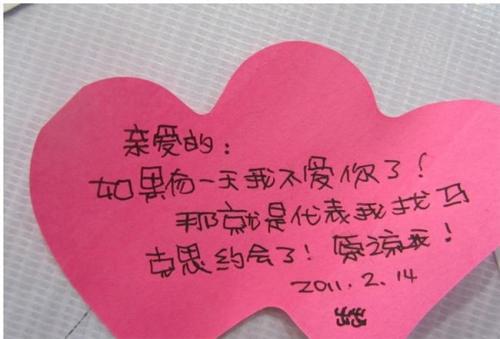 亲爱的：
如果有一天我不爱你了！
那就是代表我找马
克思约会了！原谅我！
2011.2.14